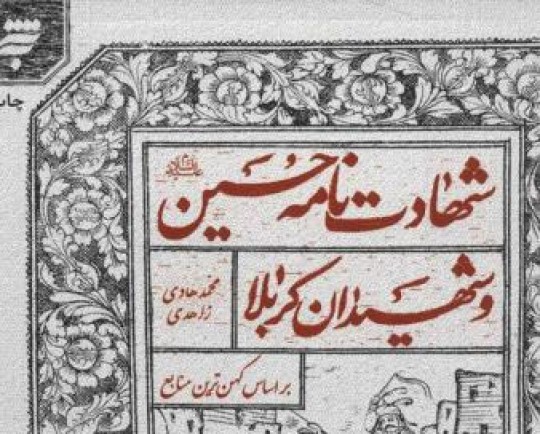 چاپ
شهادت‌نامه حسین علیه‌السلام
و شهیدان کربلا
محمدهادی
زاهدی
بر اساس کهن‌ترین منابع